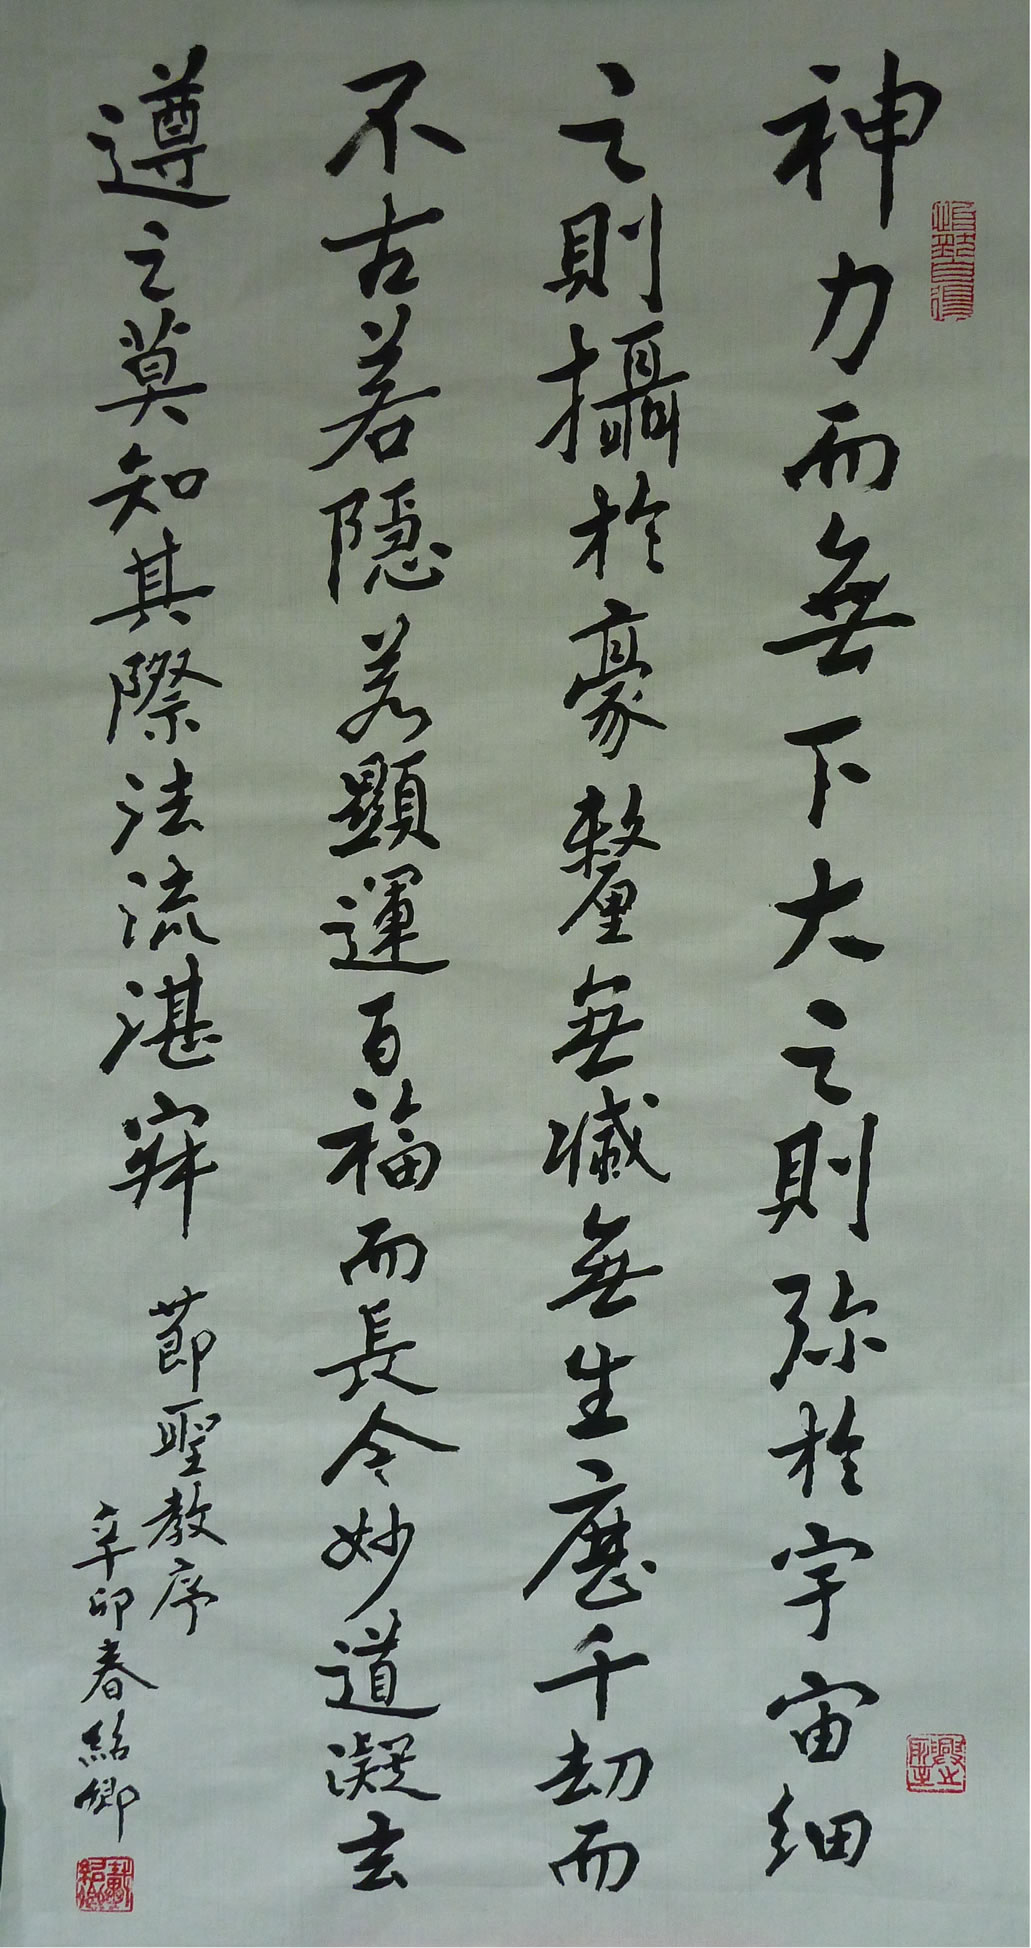 神力而無下大之則弥於宇宙細
之則攝於豪釐無減無生歷千劫而
不古若隱若顯運百福而長今妙道凝玄
遵之莫知其際法流湛寂
節聖教序
辛卯春紹卿